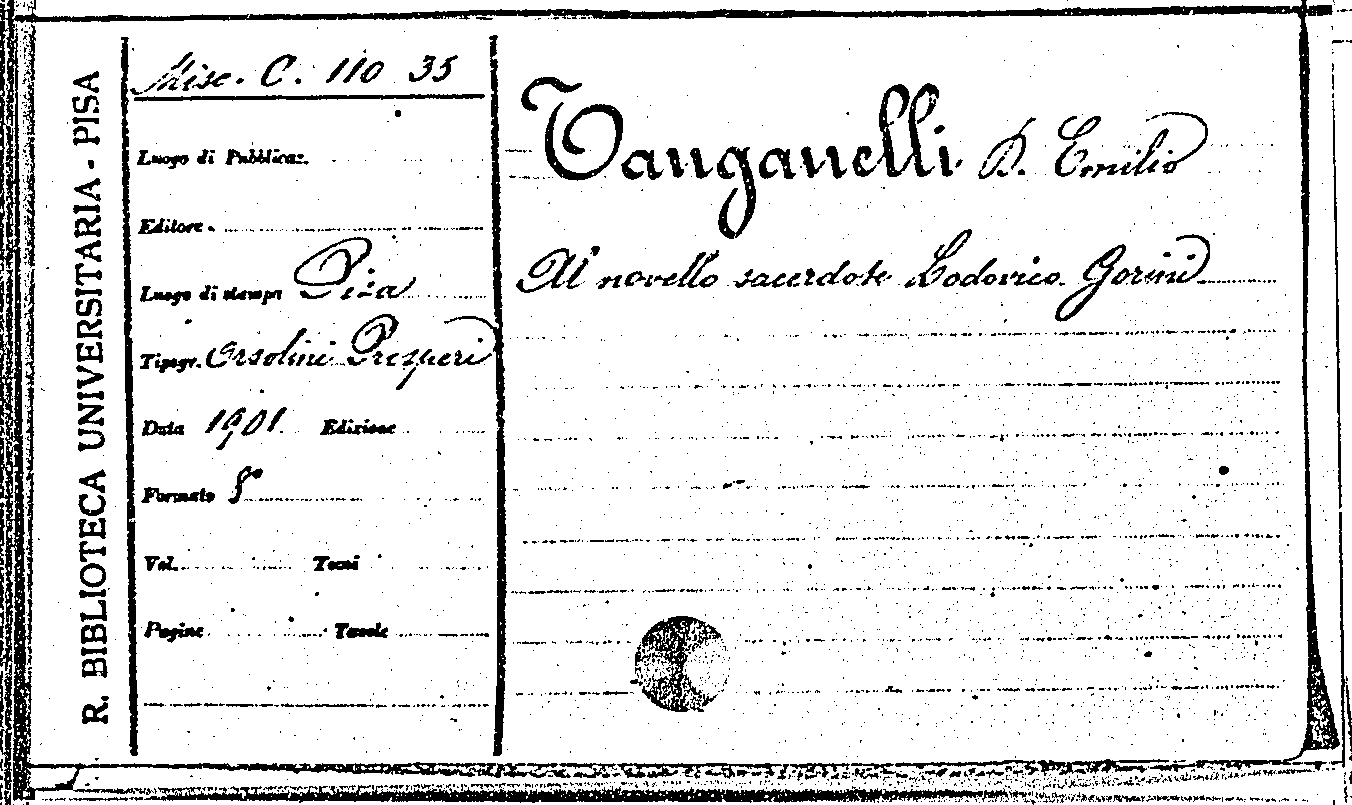 R. BIBLIOTECA UNIVERSITARIA - PISA
Misc. C. 110 35
Luogo di Pubblicaz.
Editore
Luogo di stampa Pisa
Tipogr. Orsolini Prosperi
Data 1901 Edizione
Formato 8°
Vol. Tomi
Pagine Tavole
Tanganelli D. Emilio
Al novello sacerdote Lodovico Gorini